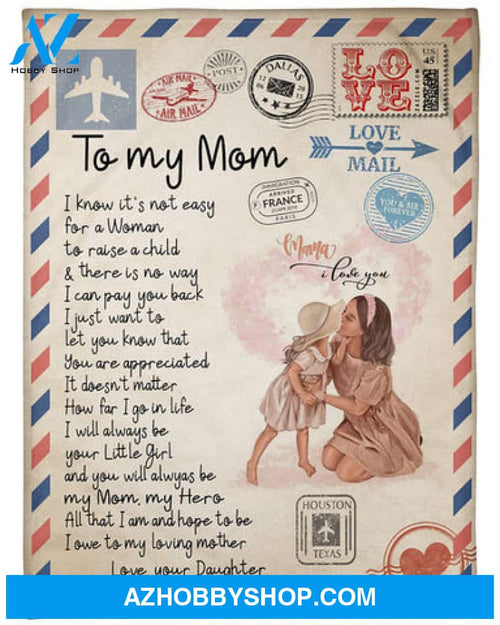 AZ
HOBBY SHOP
AIR MAIL
AIR MAIL
POST
DALLAS
U.S.
45
LOVE
ZAZZLE.COM
To my Mom
LOVE
MAIL
IMMIGRATION
ARRIVED
FRANCE
PARIS
YOU & ME
FOREVER
I know it's not easy
for a Woman
to raise a child
& there is no way
I can pay you back
I just want to
let you know that
You are appreciated
It doesn't matter
How far I go in life
I will always be
your Little Girl
and you will alwyas be
my Mom, my Hero
All that I am and hope to be
I owe to my loving mother
Love, your Daughter
Mama
i love you
HOUSTON
TEXAS
AZHOBBYSHOP.COM